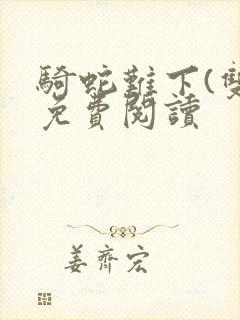 騎蛇難下(雙
免費閱讀
姜齊宏